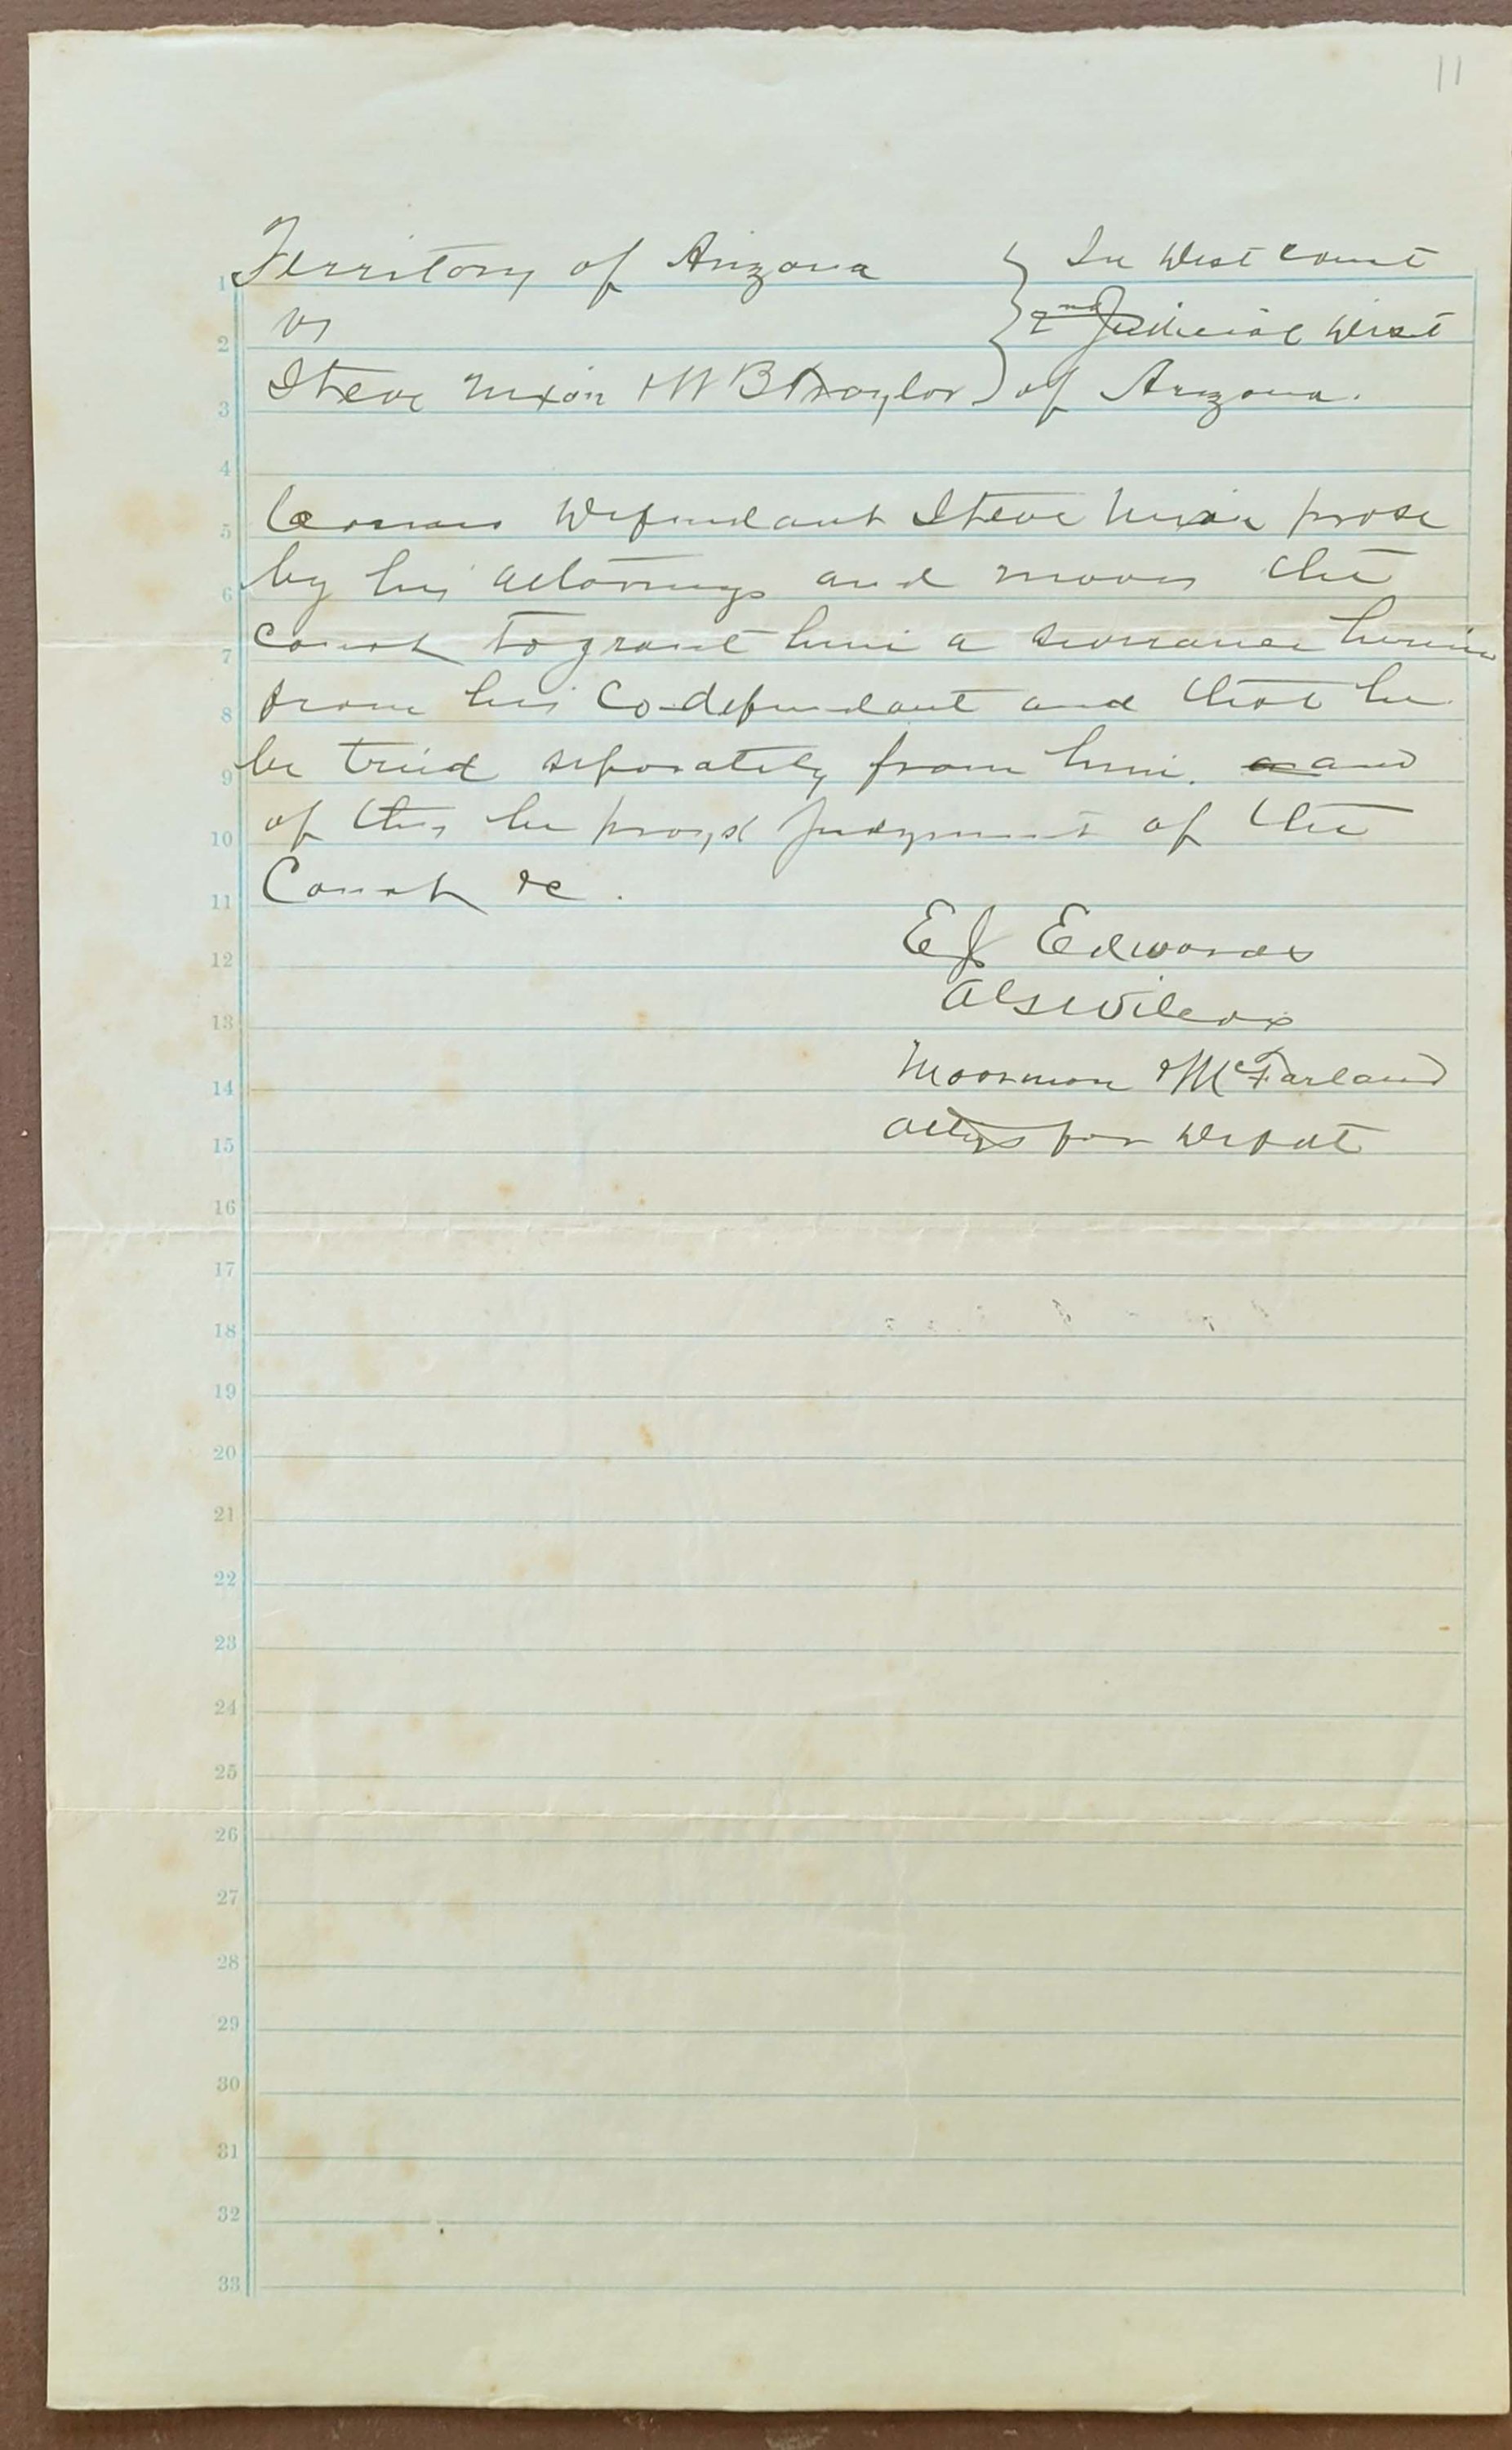 11
Territory of Arizona } In Dist Court
1
vs 2nd Judicial Dist
2
Steve Nixon & W B Traylor of Arizona.
3
4
Comes Defendant Steve Nixon
5
by his attorneys and moves the
6
Court to grant him a severance herein
7
from his Co-defendant and that he
8
be tried seperately from him. and
9
of this he prays Judgment of the
10
Court &c.
11
E J Edwards
12
Wilcox
13
Moorman & McFarland
14
Attys for Defdt
15
16
17
18
19
20
21
22
23
24
25
26
27
28
29
30
31
32
33